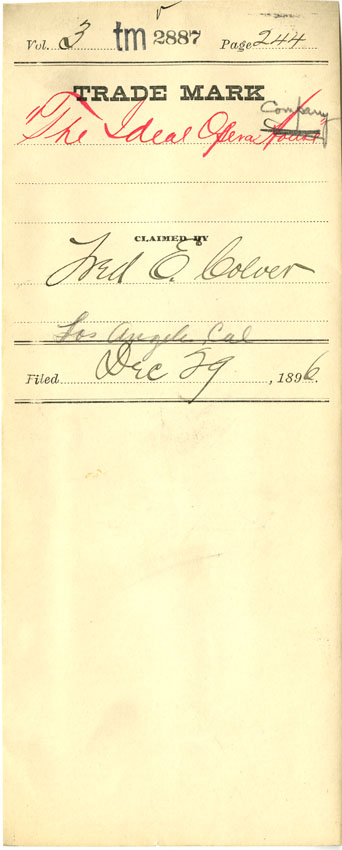 Vol. 3 tm 2887 Page 244
TRADE MARK
Company
"The Ideal Opera House"
CLAIMED BY
Fred E. Colver
Los Angeles, Cal
Filed Dec 29, 1896.